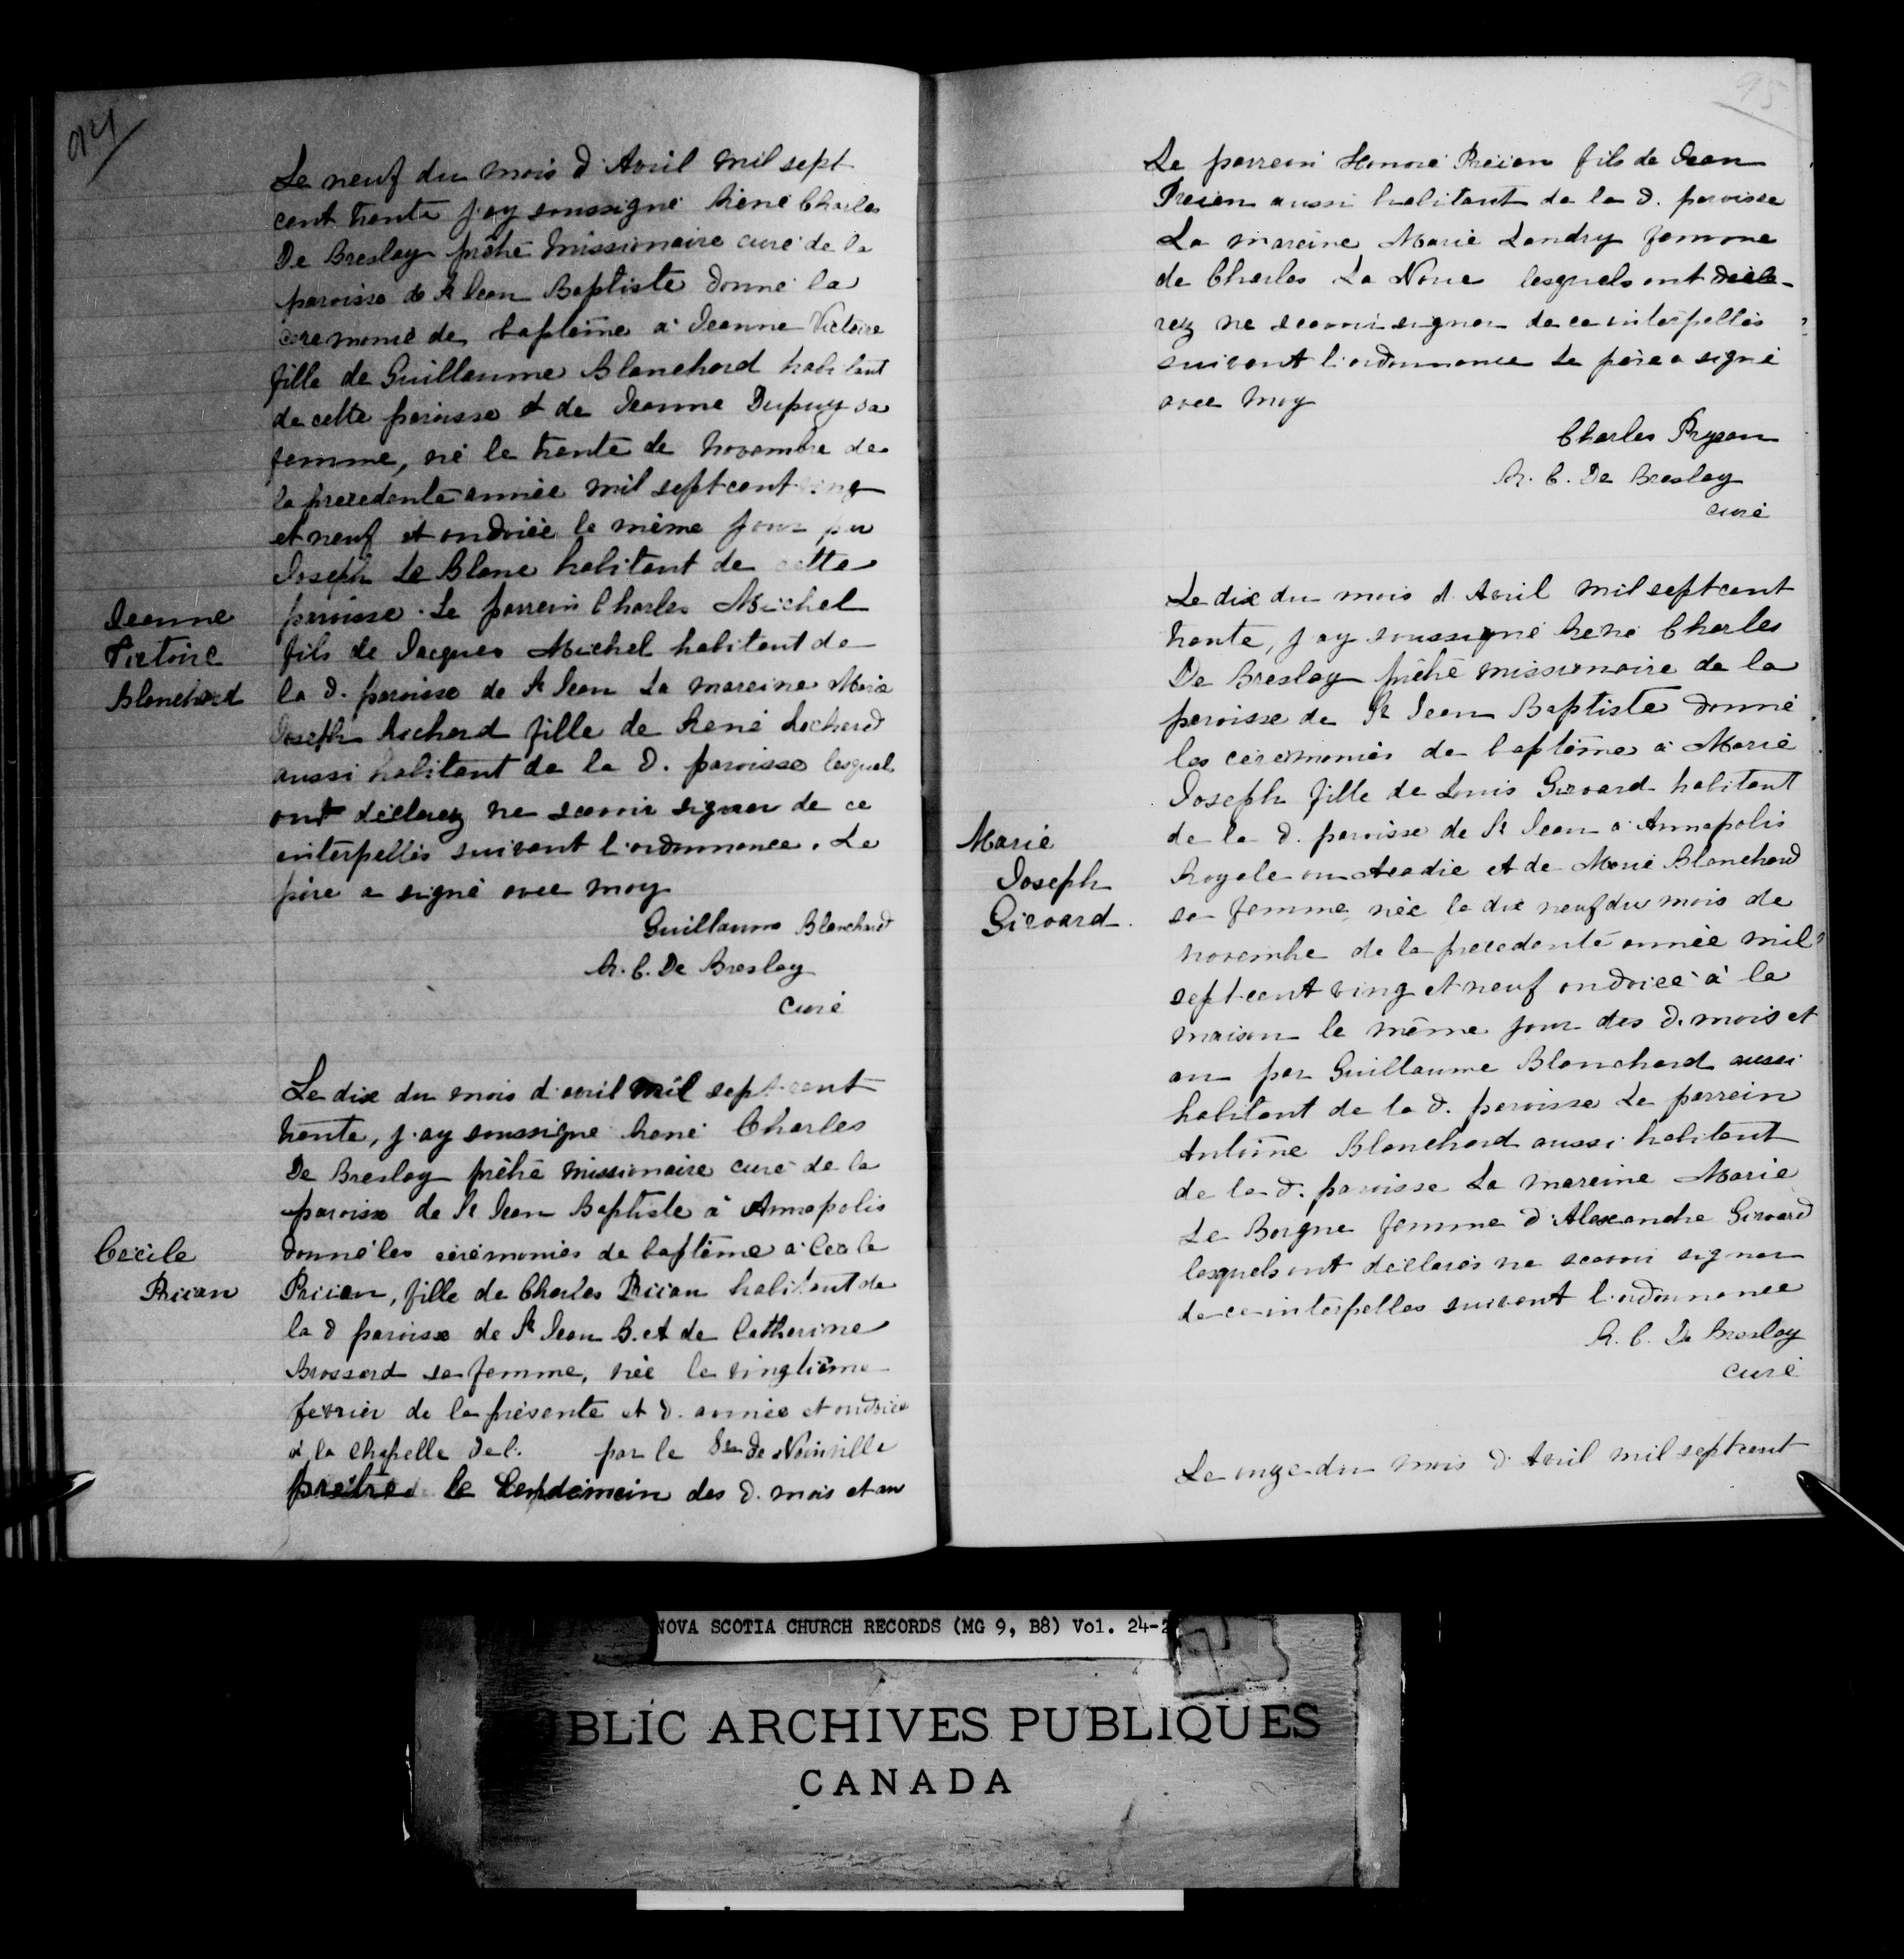 94
Le neuf du mois d'Avril mil sept
cent trente j'ay soussigné René Charles
De Breslay prêtre Missionaire curé de la
paroisse de St Jean Baptiste donné la
ceremonie de baptême a Jeanne Victoire
fille de Guillaume Blanchard habitant
de cette paroisse et de Jeanne Dupuy sa
femme, né le trente de Novembre de
la precedente année mil sept cent ving
et neuf et ondoiée le même jour par
Joseph Le Blanc habitant de cette
paroisse. Le parrein Charles Michel
fils de Jacques Michel habitant de
la d. paroisse de St Jean La mareine Marie
Joseph Richard fille de René Richard
aussi habitant de la d. paroisse lesquel
ont déclarez ne scavoir signer de ce
interpellés suivant l'ordonnance. Le
père a signé avec moy
Guillaume Blanchard
R. C. De Breslay
curé
Jeanne
Victoire
Blanchard
Le dix du mois d'avril mil sept cent
trente, j'ay soussigné René Charles
De Breslay prêtre missionaire curé de la
paroisse de St Jean Baptiste à Annapolis
donné les cérémonies de baptême a Cécile
Pricon, fille de Charles Pricon habitant de
la d paroisse de St Jean B. et de Catherine
Brossard sa femme, née le vingtième
fevrier de la présente et d. année et ondoiée
à la Chapelle de l. par le Sr de Noinville
prêtre le lendemain des d. mois et an
Cécile
Pricon
95
Le parrein Honoré Pricon fils de Jean
Pricon aussi habitant de la d. paroisse
La mareine Marie Landry femme
de Charles La Noue lesquels ont décla-
rez ne scavoir signer de ce interpellés
suivant l'ordonnance Le père a signé
avec moy
Charles Pryjean
R. C. De Breslay
curé
Le dix du mois d'Avril mil sept cent
trente, j'ay soussigné René Charles
De Breslay prêtre missionaire de la
paroisse de St Jean Baptiste donné
les cérémonies de baptême a Marie
Joseph fille de Louis Girouard habitant
de la d. paroisse de St Jean a Annapolis
Royale en Acadie et de Marie Blanchard
sa femme née le dix neuf du mois de
novembre de la precedente année mil
sept cent ving et neuf ondoiée à la
maison le même jour des d. mois et
an par Guillaume Blanchard aussi
habitant de la d. paroisse Le parrein
Antoine Blanchard aussi habitant
de la d. paroisse La mareine Marie
Le Borgne femme d'Alexandre Girouard
lesquels ont déclarés ne scavoir signer
de ce interpelles suivant l'ordonnance
R. C. De Breslay
curé
Marie
Joseph
Girouard
Le onze du mois d'Avril mil sept cent
NOVA SCOTIA CHURCH RECORDS (MG 9, B8) Vol. 24-2
BLIC ARCHIVES PUBLIQUES
CANADA